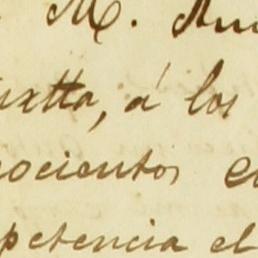 M. Am
uxtta, á los
ocientos c
petencia el